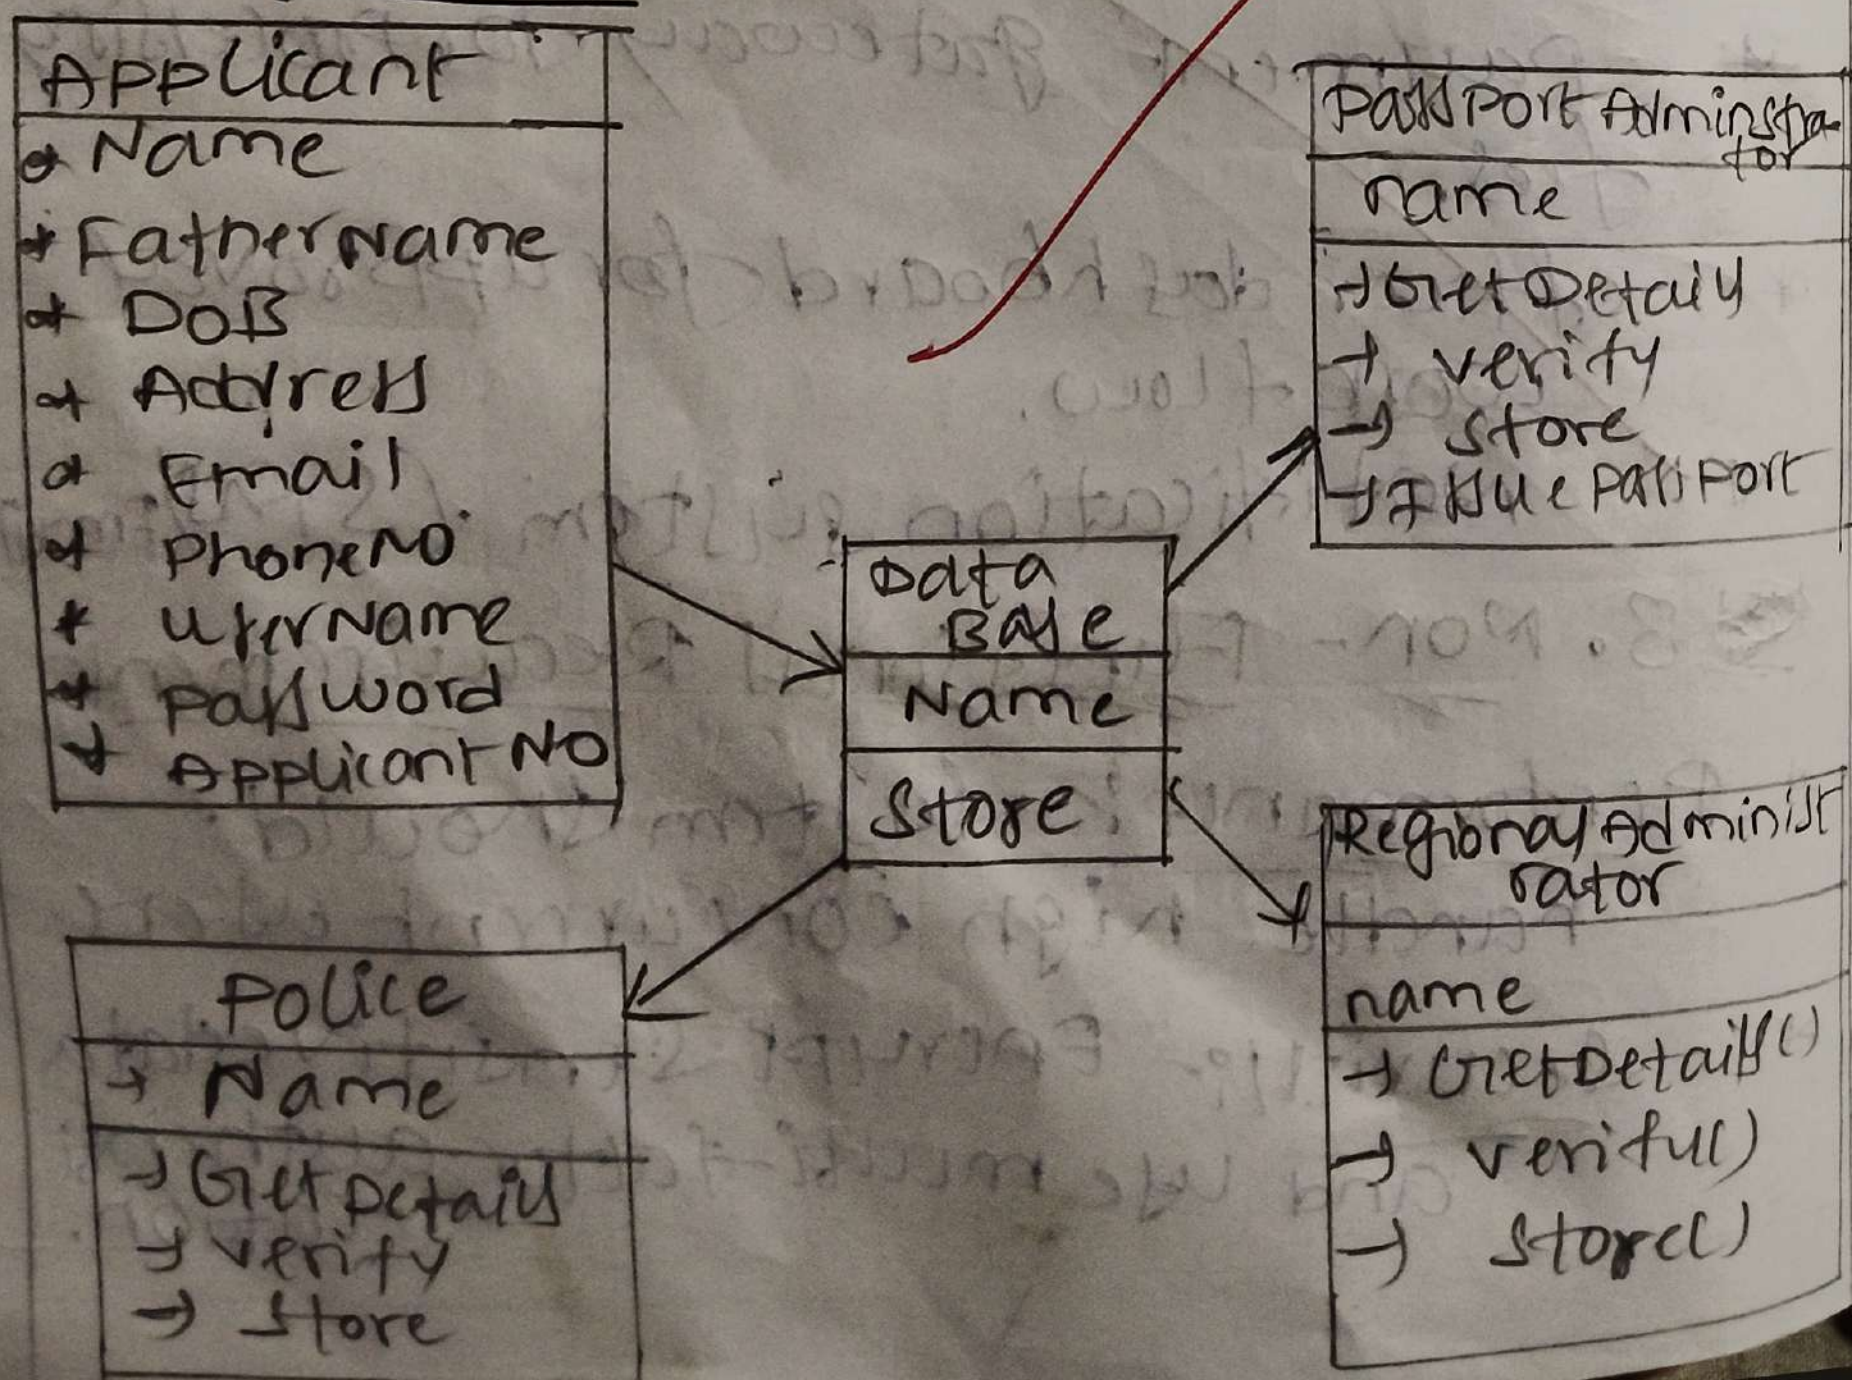 Applicant
* Name
* FatherName
* DOB
* Address
* Email
* PhoneNO
* UserName
* Password
* Applicant NO
PassPort Adminstra-
tor
name
→ GetDetails
→ verify
→ store
→ Issue PassPort
Data
Base
Name
Store
Regional Administ
rator
name
→ GetDetails()
→ verify()
→ store()
Police
→ Name
→ GetDetails
→ verify
→ store